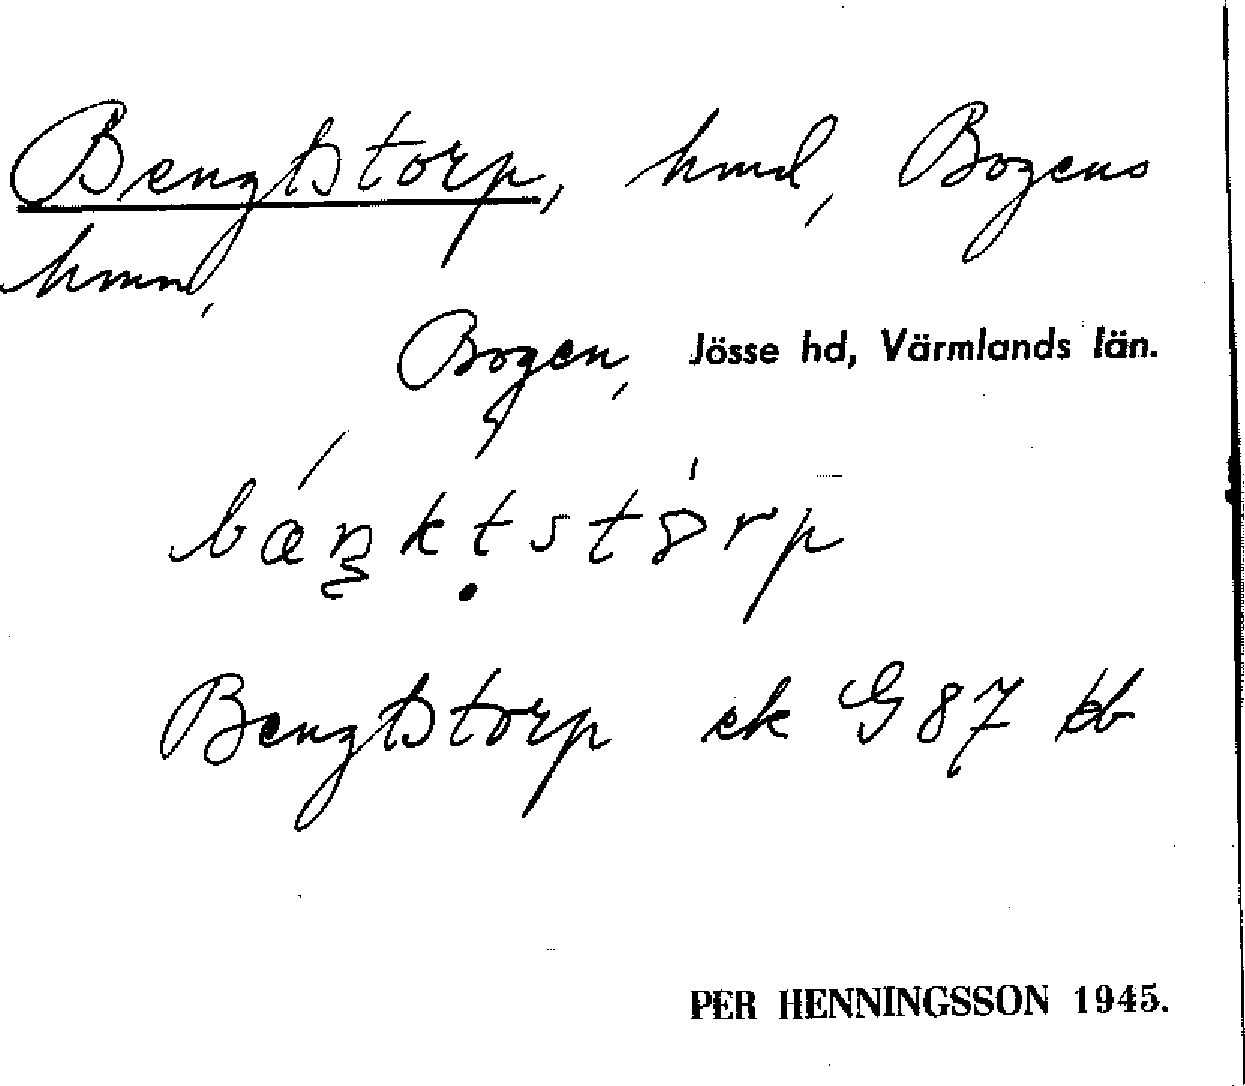 Bengtstorp, hmd, Bogens
hmn,
Bogen, Jösse hd, Värmlands län.
bæŋkṭstɔrp
Bengtstorp ek G 87 bb
PER HENNINGSSON 1945.